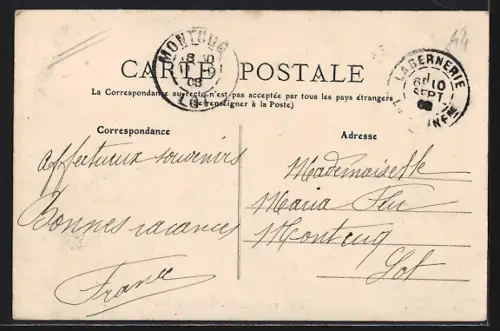 44
MONTCUQ
8
08
LOT
LABERNERIE
6E 10
SEPT
08
CARTE POSTALE
La Correspondance au recto n'est pas acceptée par tous les pays étrangers
(Se renseigner à la Poste)
Correspondance
Adresse
Affectueux souvenirs
Bonnes vacances
France
Mademoiselle
Maria
Montcuq
Lot